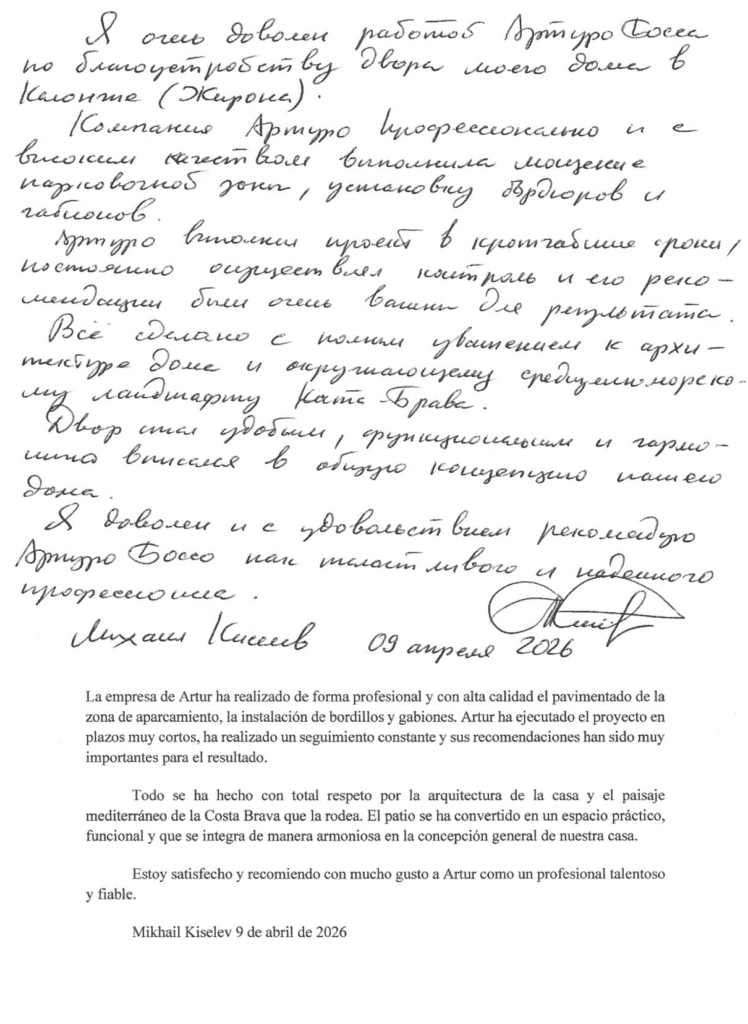 Я очень доволен работой Артуро Босса
по благоустройству двора моего дома в
Калонже (Жирона).
Компания Артуро профессионально и с
высоким качеством выполнила мощение
парковочной зоны, установку бърдюров и
габионов.
Артуро выполнил проект в кротчайшие сроки,
постоянно осуществлял контроль и его реко-
мендации были очень важны для результата.
Всё сделано с полным уважением к архи-
тектуре дома и окружающему средиземноморско-
му ландшафту Коста-Брава.
Двор стал удобным, функциональным и гармо-
нично вписался в общую концепцию нашего
дома.
Я доволен и с удовольствием рекомендую
Артуро Босса как талантливого и надежного
профессионала.
Михаил Киселев 09 апреля 2026
La empresa de Artur ha realizado de forma profesional y con alta calidad el pavimentado de la
zona de aparcamiento, la instalación de bordillos y gabiones. Artur ha ejecutado el proyecto en
plazos muy cortos, ha realizado un seguimiento constante y sus recomendaciones han sido muy
importantes para el resultado.
Todo se ha hecho con total respeto por la arquitectura de la casa y el paisaje
mediterráneo de la Costa Brava que la rodea. El patio se ha convertido en un espacio práctico,
funcional y que se integra de manera armoniosa en la concepción general de nuestra casa.
Estoy satisfecho y recomiendo con mucho gusto a Artur como un profesional talentoso
y fiable.
Mikhail Kiselev 9 de abril de 2026